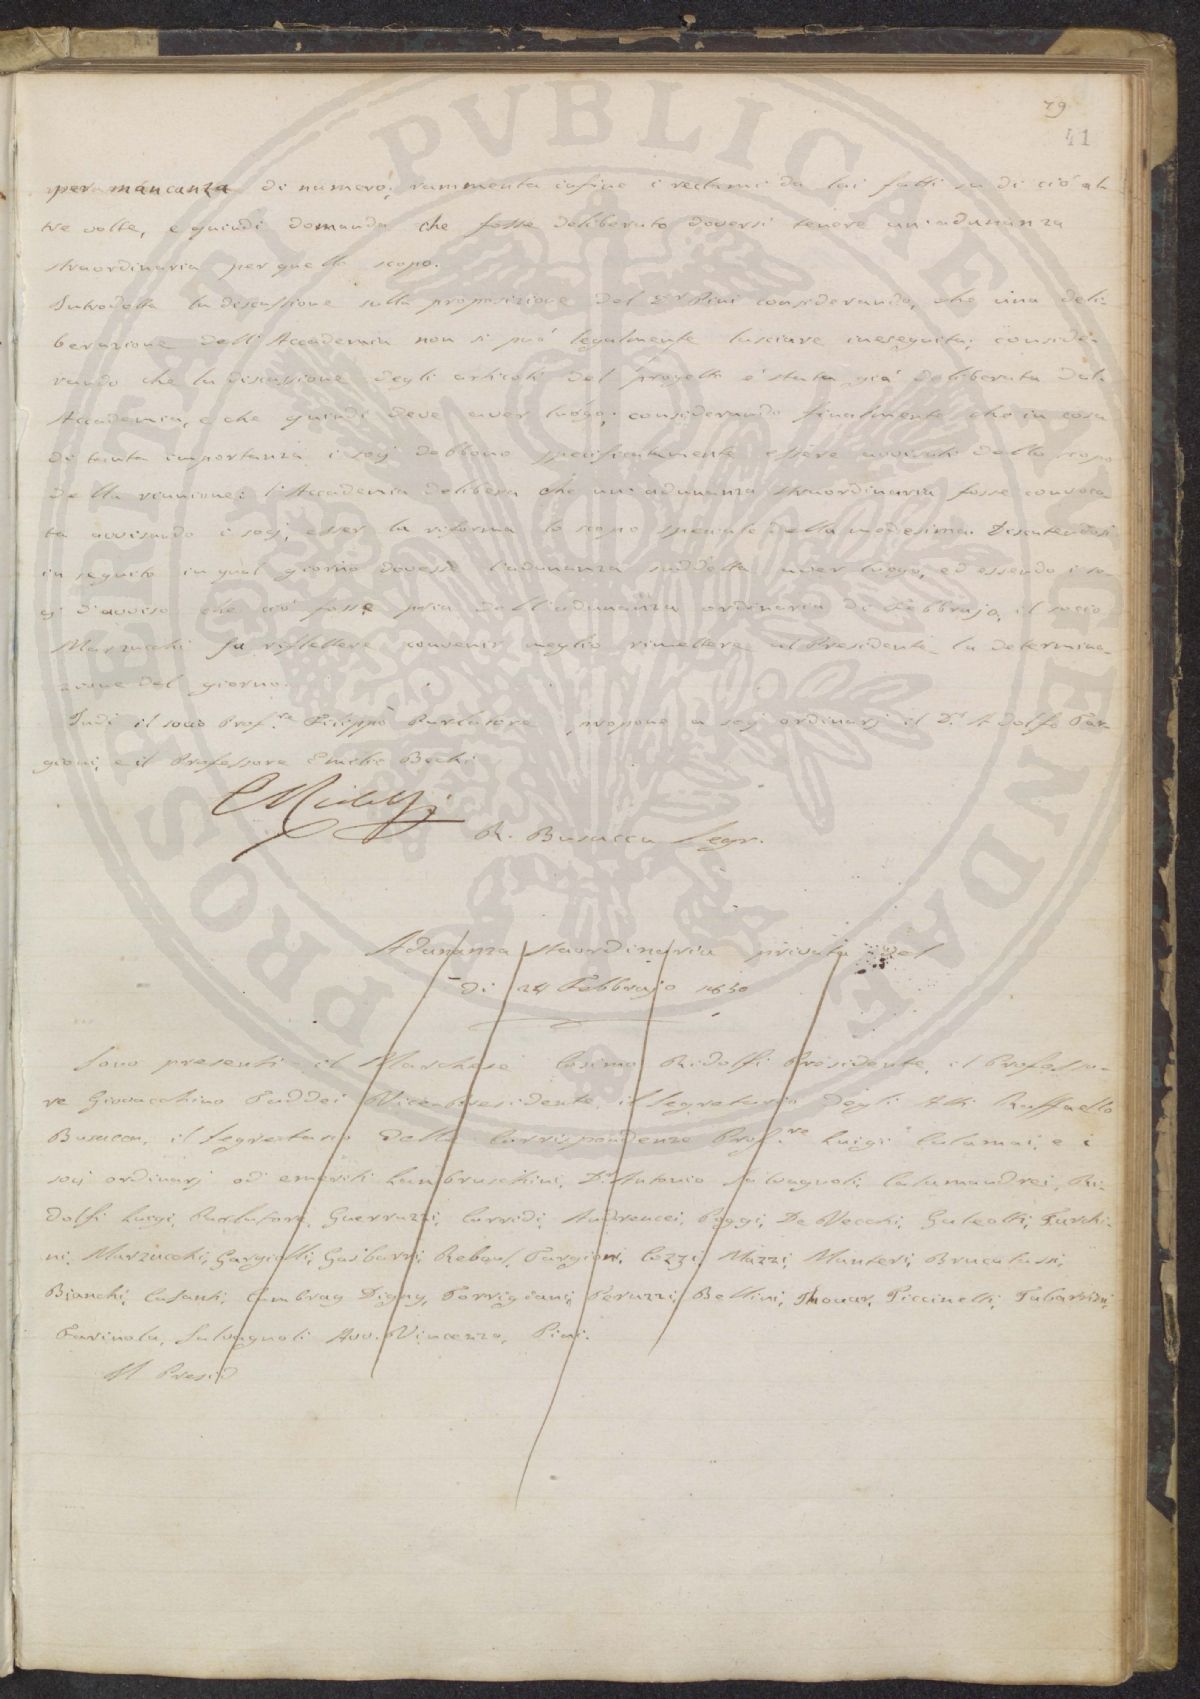 79
41
per mancanza di numero; rammenta infine i reclami da lui fatti su di ciò al-
tre volte, e quindi domanda che fosse deliberato doversi tenere un'adunanza
straordinaria per quello scopo.
Introdotta la discussione sulla proposizione del Dr Pini considerando, che una deli-
berazione dell'Accademia non si può legalmente lasciare ineseguita; conside-
rando che la discussione degli articoli del progetto è stata già deliberata dal-
Accademia, e che quindi deve aver luogo; considerando finalmente che in cosa
di tanta importanza i socj debbono specificatamente essere avvisati dello scopo
della riunione: l'Accademia delibera che un'adunanza straordinaria fosse convoca
ta avvisando i socj, esser la riforma lo scopo speciale della medesima. Discutendosi
in seguito in qual giorno dovesse l'adunanza suddetta aver luogo, ed essendo i so-
cj d'avviso che ciò fosse pria dell'adunanza ordinaria di Febbrajo, il socio
Marzucchi fa riflettere convenir meglio rimettere al Presidente la determina-
zione del giorno.
Indi il socio Prof.re Filippo Parlatore propone a socj ordinarj il Dr Adolfo Tar-
gioni, e il Professore Emilio Bechi
C Ridolfi
R. Busacca Segr.
Adunanza staordinaria privata del
dì 24 Febbrajo 1850
Sono presenti il Marchese Cosimo Ridolfi Presidente, il Professo-
re Giovacchino Taddei Vice-Presidente, il Segretario degli Atti Raffaello
Busacca, il Segretario delle Corrispondenze Prof.re Luigi Calamai, e i
socj ordinarj od emeriti Lambruschini, Dr Antonio Salvagnoli, Calamandrei, Ri-
dolfi Luigi, Parlatore, Guerrazzi, Corridi, Andreucci, Poggi, De Vecchi, Galeotti, Turchi-
ni, Marzucchi, Gargiolli, Gasbarri, Reboul, Targioni, Cozzi, Mazzi, Manteri, Brucalassi,
Bianchi, Casanti, Cambray Digny, Torrigiani, Peruzzi, Bellini, Thouar, Piccinetti, Tabarrini,
Farinola, Salvagnoli Avv. Vincenzo, Pini.
Il Presid
PROSPERITATI PVBLICAE AVGENDAE